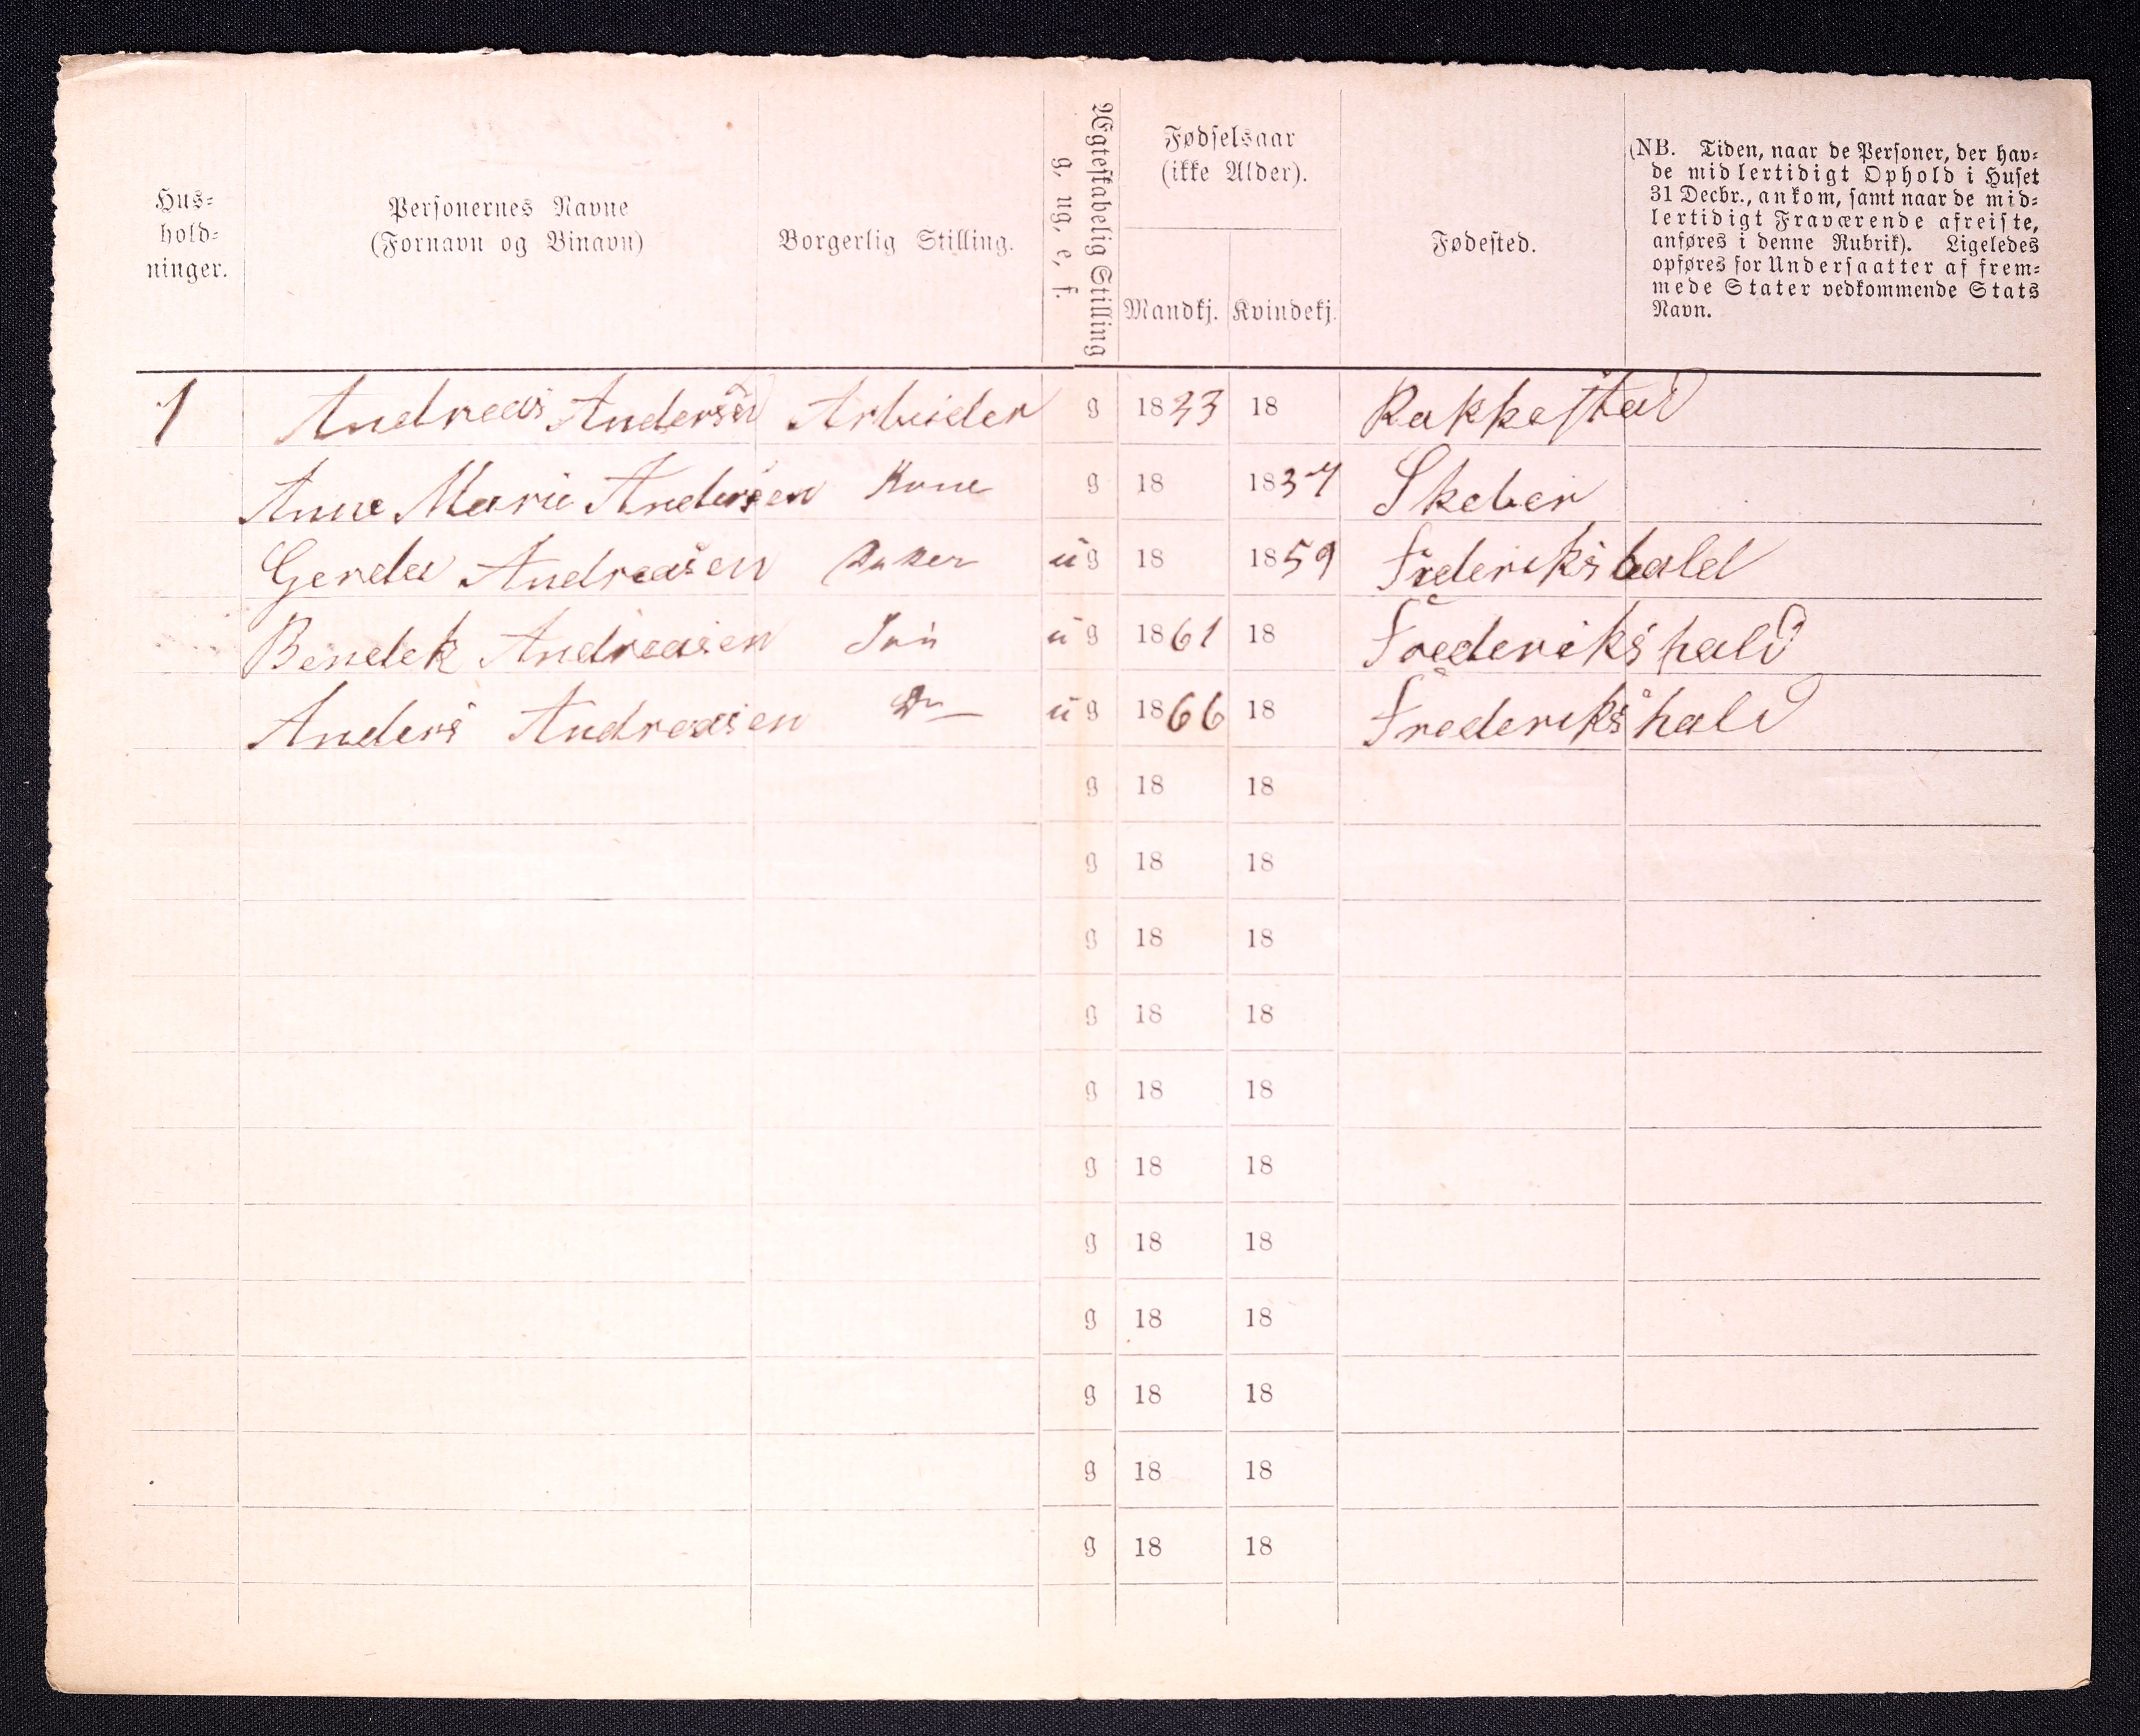 Hus-
hold-
ninger.
Personernes Navne
(Fornavn og Binavn)
Borgerlig Stilling.
Ægteskabelig Stilling
g, ug, e, f.
Fødselsaar
(ikke Alder).
Mandkj. Kvindekj.
Fødested.
(NB. Tiden, naar de Personer, der hav-
de midlertidigt Ophold i Huset
31 Decbr., ankom, samt naar de mid-
lertidigt Fraværende afreiste,
anføres i denne Rubrik). Ligeledes
opføres for Undersaatter af frem-
mede Stater vedkommende Stats
Navn.
1 Andreas Andersen Arbeider g 1833 18 Rakkestad
Anne Marie Andersen Kone g 18 1837 Skeber
Gerda Andreasen ug 18 1859 Frederikshald
Bendek Andreasen Søn ug 1861 18 Frederikshald
Anders Andreasen Do ug 1866 18 Frederikshald
g 18 18
g 18 18
g 18 18
g 18 18
g 18 18
g 18 18
g 18 18
g 18 18
g 18 18
g 18 18
g 18 18